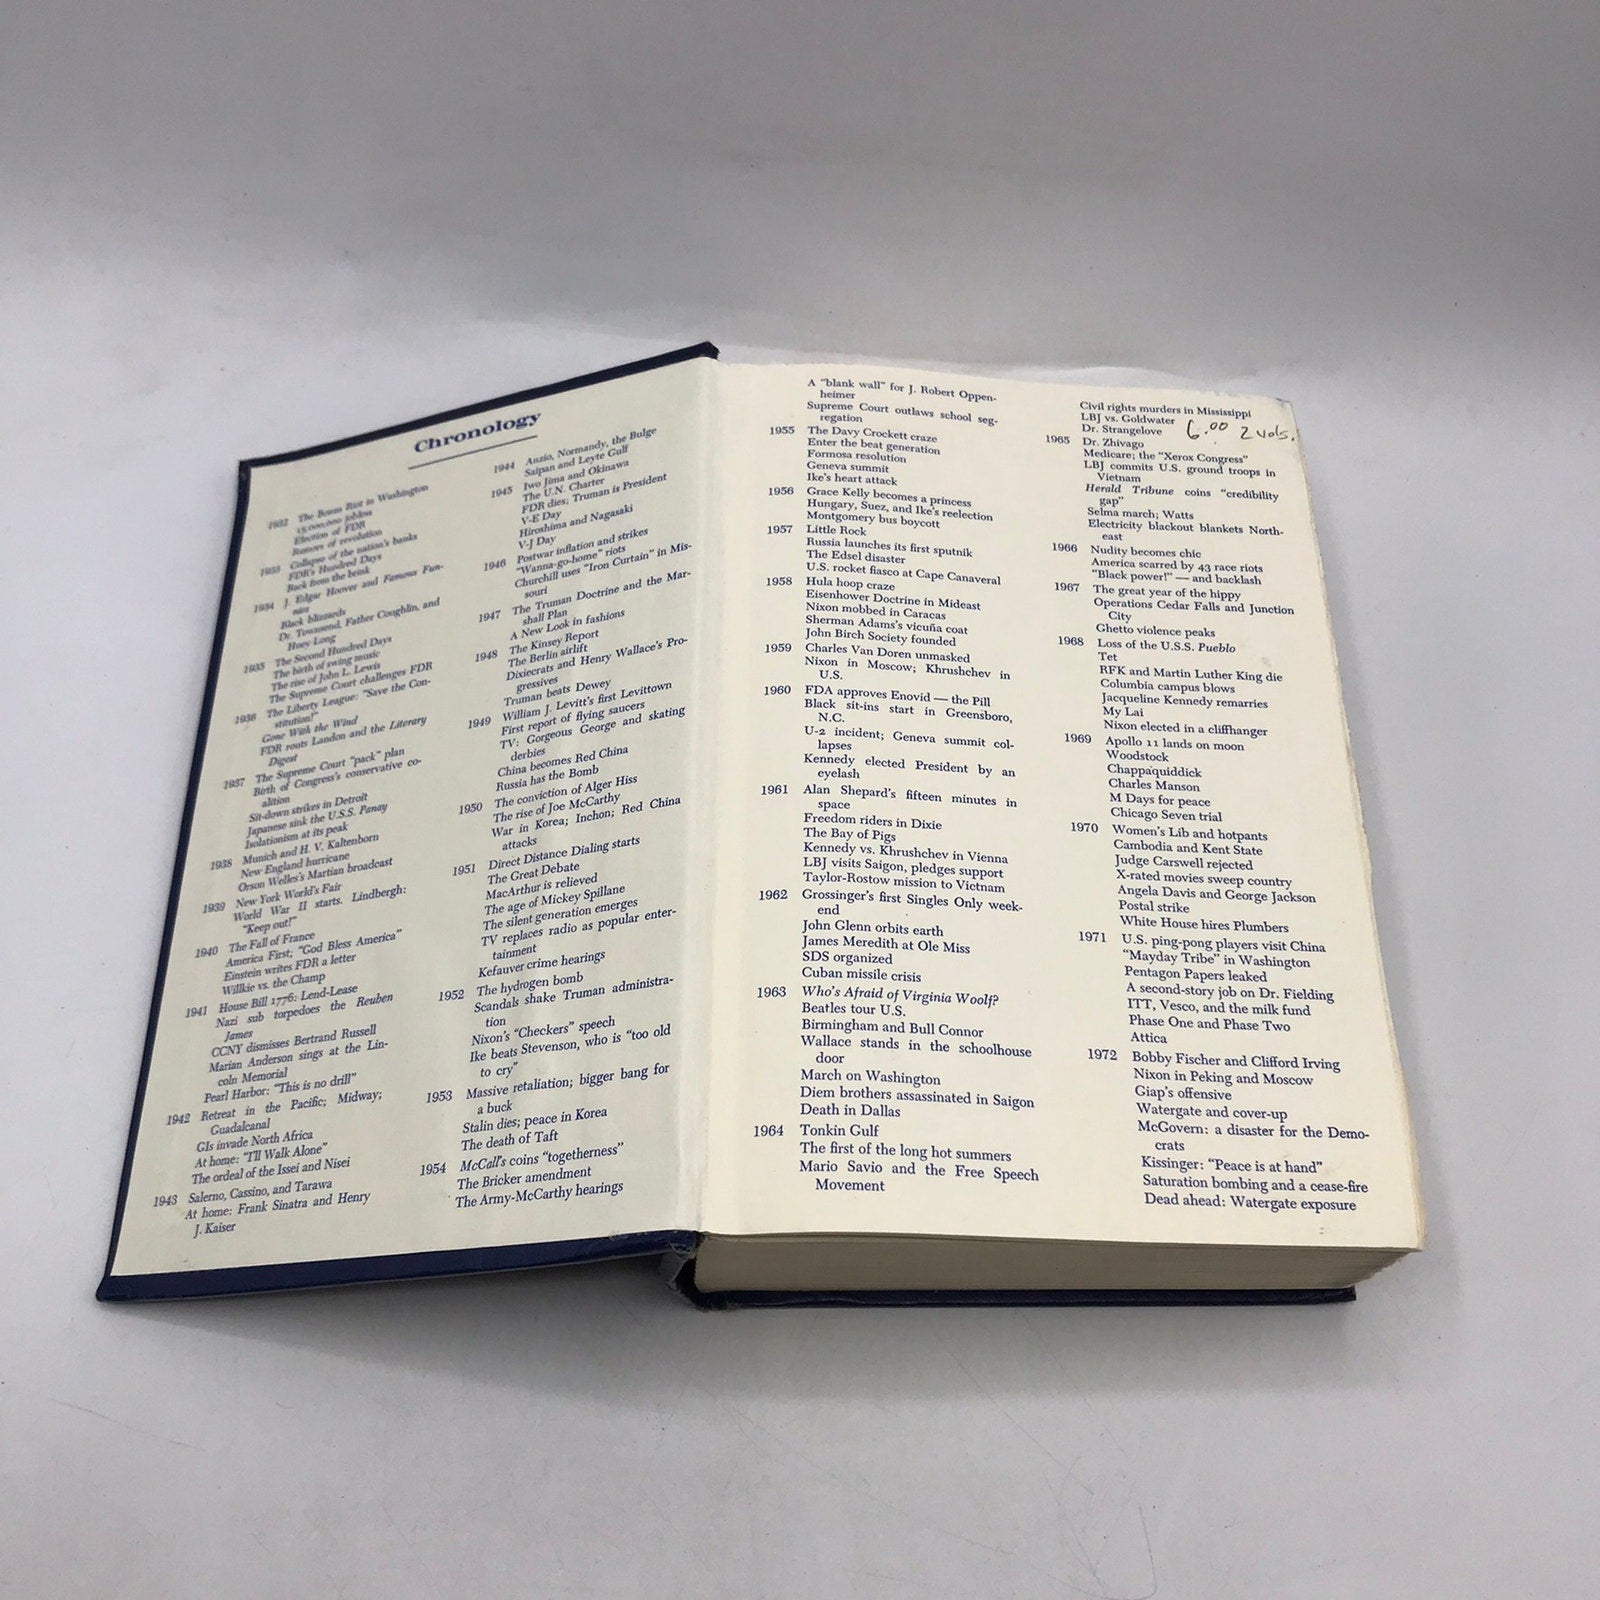 Chronology
1932 The Bonus Riot in Washington
15,000,000 jobless
Election of FDR
Rumors of revolution
1933 Collapse of the nation's banks
FDR's Hundred Days
Back from the brink
1934 J. Edgar Hoover and Famous Fun-
nies
Black blizzards
Dr. Townsend, Father Coughlin, and
Huey Long
1935 The Second Hundred Days
The birth of swing music
The rise of John L. Lewis
The Supreme Court challenges FDR
1936 The Liberty League: "Save the Con-
stitution!"
Gone With the Wind
FDR routs Landon and the Literary
Digest
1937 The Supreme Court "pack" plan
Birth of Congress's conservative co-
alition
Sit-down strikes in Detroit
Japanese sink the U.S.S. Panay
Isolationism at its peak
1938 Munich and H. V. Kaltenborn
New England hurricane
Orson Welles's Martian broadcast
1939 New York World's Fair
World War II starts. Lindbergh:
"Keep out!"
1940 The Fall of France
America First; "God Bless America"
Einstein writes FDR a letter
Willkie vs. the Champ
1941 House Bill 1776: Lend-Lease
Nazi sub torpedoes the Reuben
James
CCNY dismisses Bertrand Russell
Marian Anderson sings at the Lin-
coln Memorial
Pearl Harbor: "This is no drill"
1942 Retreat in the Pacific; Midway;
Guadalcanal
GIs invade North Africa
At home: "I'll Walk Alone"
The ordeal of the Issei and Nisei
1943 Salerno, Cassino, and Tarawa
At home: Frank Sinatra and Henry
J. Kaiser
1944 Anzio, Normandy, the Bulge
Saipan and Leyte Gulf
1945 Iwo Jima and Okinawa
The U.N. Charter
FDR dies; Truman is President
V-E Day
Hiroshima and Nagasaki
V-J Day
1946 Postwar inflation and strikes
"Wanna-go-home" riots
Churchill uses "Iron Curtain" in Mis-
souri
1947 The Truman Doctrine and the Mar-
shall Plan
A New Look in fashions
1948 The Kinsey Report
The Berlin airlift
Dixiecrats and Henry Wallace's Pro-
gressives
Truman beats Dewey
1949 William J. Levitt's first Levittown
First report of flying saucers
TV: Gorgeous George and skating
derbies
China becomes Red China
Russia has the Bomb
1950 The conviction of Alger Hiss
The rise of Joe McCarthy
War in Korea; Inchon; Red China
attacks
1951 Direct Distance Dialing starts
The Great Debate
MacArthur is relieved
The age of Mickey Spillane
The silent generation emerges
TV replaces radio as popular enter-
tainment
Kefauver crime hearings
1952 The hydrogen bomb
Scandals shake Truman administra-
tion
Nixon's "Checkers" speech
Ike beats Stevenson, who is "too old
to cry"
1953 Massive retaliation; bigger bang for
a buck
Stalin dies; peace in Korea
The death of Taft
1954 McCall's coins "togetherness"
The Bricker amendment
The Army-McCarthy hearings
A "blank wall" for J. Robert Oppen-
heimer
Supreme Court outlaws school seg-
regation
1955 The Davy Crockett craze
Enter the beat generation
Formosa resolution
Geneva summit
Ike's heart attack
1956 Grace Kelly becomes a princess
Hungary, Suez, and Ike's reelection
Montgomery bus boycott
1957 Little Rock
Russia launches its first sputnik
The Edsel disaster
U.S. rocket fiasco at Cape Canaveral
1958 Hula hoop craze
Eisenhower Doctrine in Mideast
Nixon mobbed in Caracas
Sherman Adams's vicuña coat
John Birch Society founded
1959 Charles Van Doren unmasked
Nixon in Moscow; Khrushchev in
U.S.
1960 FDA approves Enovid — the Pill
Black sit-ins start in Greensboro,
N.C.
U-2 incident; Geneva summit col-
lapses
Kennedy elected President by an
eyelash
1961 Alan Shepard's fifteen minutes in
space
Freedom riders in Dixie
The Bay of Pigs
Kennedy vs. Khrushchev in Vienna
LBJ visits Saigon, pledges support
Taylor-Rostow mission to Vietnam
1962 Grossinger's first Singles Only week-
end
John Glenn orbits earth
James Meredith at Ole Miss
SDS organized
Cuban missile crisis
1963 Who's Afraid of Virginia Woolf?
Beatles tour U.S.
Birmingham and Bull Connor
Wallace stands in the schoolhouse
door
March on Washington
Diem brothers assassinated in Saigon
Death in Dallas
1964 Tonkin Gulf
The first of the long hot summers
Mario Savio and the Free Speech
Movement
Civil rights murders in Mississippi
LBJ vs. Goldwater
Dr. Strangelove
6.00 2 vols.
1965 Dr. Zhivago
Medicare; the "Xerox Congress"
LBJ commits U.S. ground troops in
Vietnam
Herald Tribune coins "credibility
gap"
Selma march; Watts
Electricity blackout blankets North-
east
1966 Nudity becomes chic
America scarred by 43 race riots
"Black power!" — and backlash
1967 The great year of the hippy
Operations Cedar Falls and Junction
City
Ghetto violence peaks
1968 Loss of the U.S.S. Pueblo
Tet
RFK and Martin Luther King die
Columbia campus blows
Jacqueline Kennedy remarries
My Lai
Nixon elected in a cliffhanger
1969 Apollo 11 lands on moon
Woodstock
Chappaquiddick
Charles Manson
M Days for peace
Chicago Seven trial
1970 Women's Lib and hotpants
Cambodia and Kent State
Judge Carswell rejected
X-rated movies sweep country
Angela Davis and George Jackson
Postal strike
White House hires Plumbers
1971 U.S. ping-pong players visit China
"Mayday Tribe" in Washington
Pentagon Papers leaked
A second-story job on Dr. Fielding
ITT, Vesco, and the milk fund
Phase One and Phase Two
Attica
1972 Bobby Fischer and Clifford Irving
Nixon in Peking and Moscow
Giap's offensive
Watergate and cover-up
McGovern: a disaster for the Demo-
crats
Kissinger: "Peace is at hand"
Saturation bombing and a cease-fire
Dead ahead: Watergate exposure